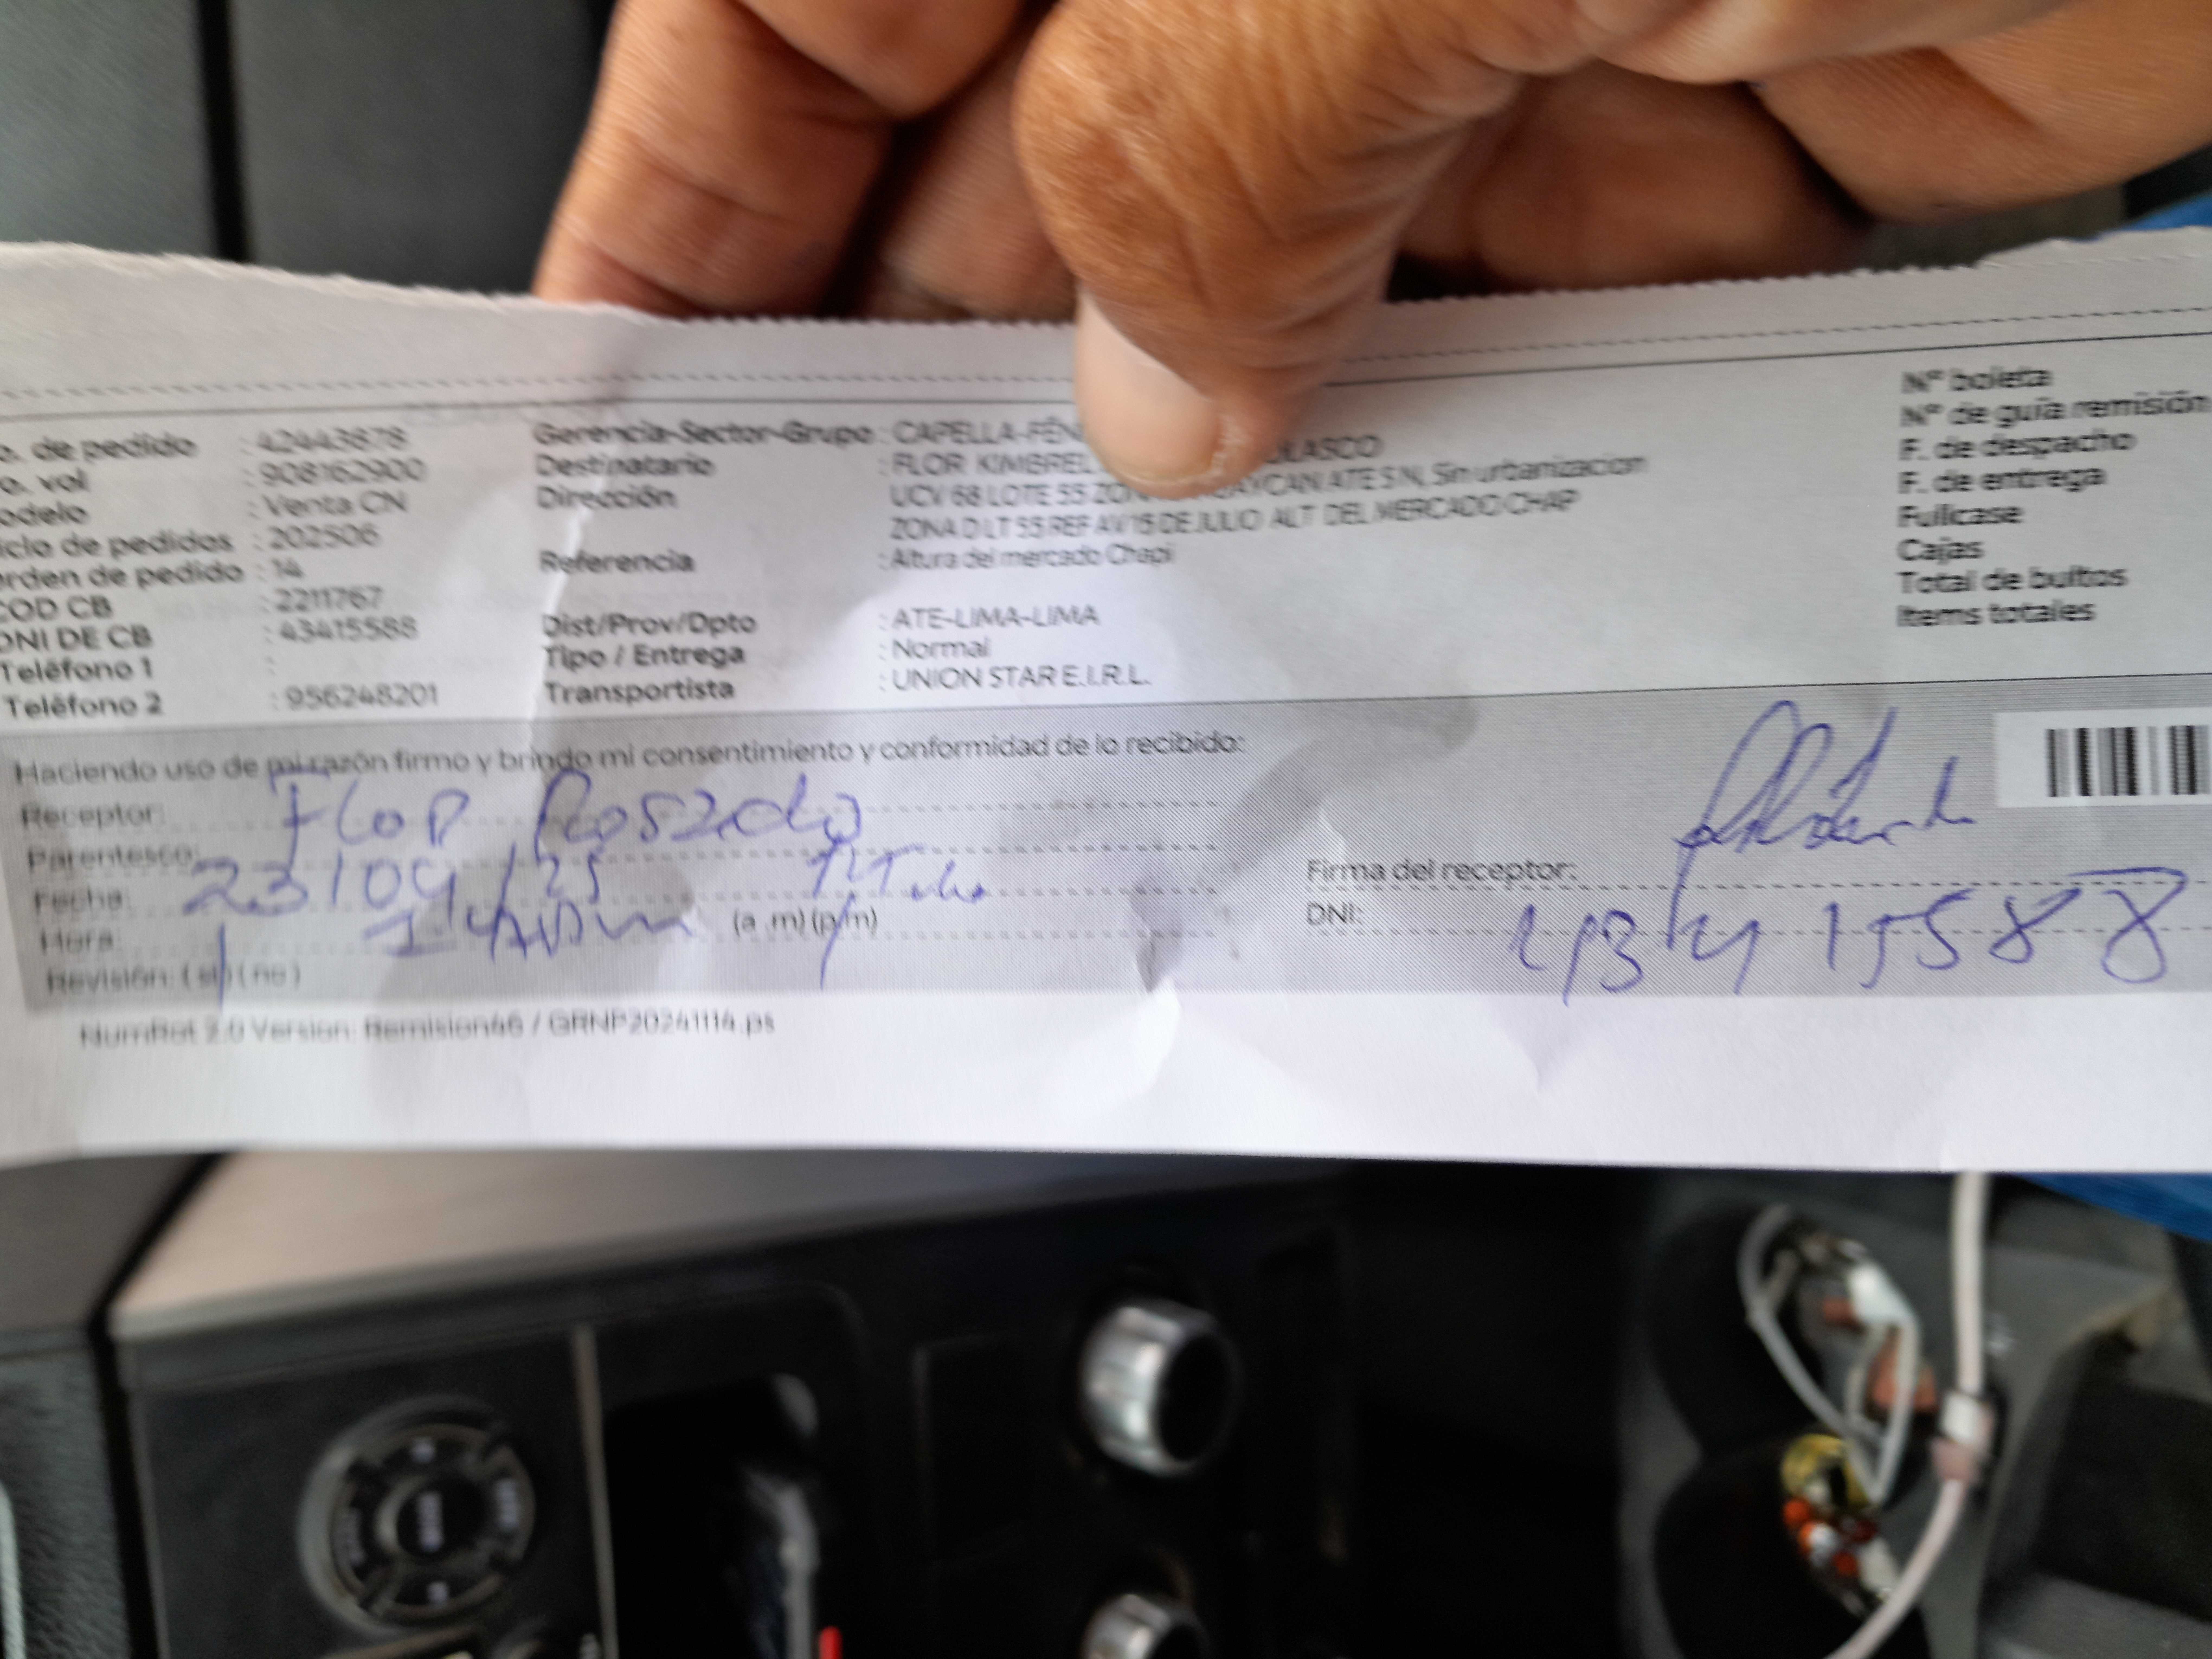 o. de pedido : 42443678
o. vol : 908162900
odelo : Venta CN
iclo de pedidos : 202506
rden de pedido : 14
COD CB : 2211767
DNI DE CB : 43415588
Teléfono 1 :
Teléfono 2 : 956248201
Gerencia-Sector-Grupo : CAPELLA-FÉN
Destinatario : FLOR KIMBREL OLASCO
Dirección : UCV 68 LOTE 55 ZON AYCAN ATE S N, Sin urbanizacion
ZONA D LT 55 REF AV 15 DE JULIO ALT DEL MERCADO CHAP
Referencia : Altura del mercado Chapi
Dist/Prov/Dpto : ATE-LIMA-LIMA
Tipo / Entrega : Normal
Transportista : UNION STAR E.I.R.L.
Nº boleta
Nº de guía remisión
F. de despacho
F. de entrega
Fullcase
Cajas
Total de bultos
Items totales
Haciendo uso de mi razón firmo y brindo mi consentimiento y conformidad de lo recibido:
Receptor: Flor Rosado
Parentesco:
Fecha: 23/04/25
Hora: (a .m) (p/m)
Revisión: (si) (no)
Firma del receptor:
DNI: 43415588
NumRot 2.0 Version: Remision46 / GRNP20241114.ps